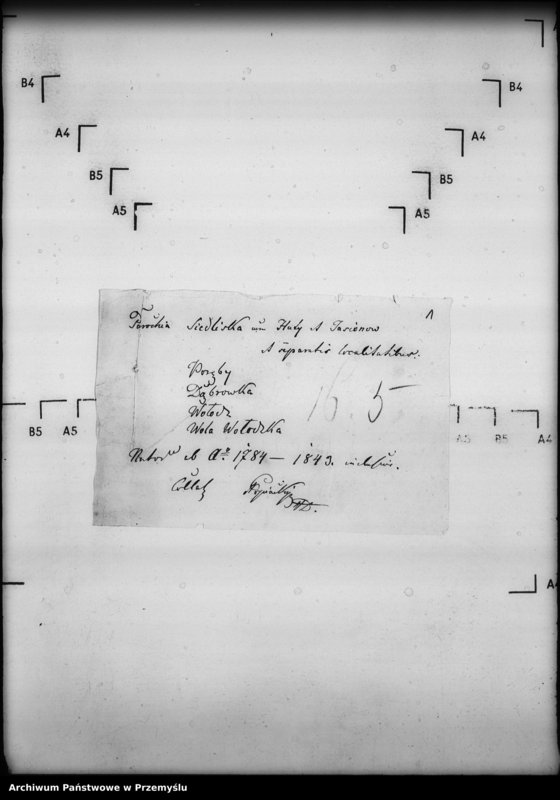 B4 B4
A4 A4
B5 B5
A5 A5
1
Parochia Siedliska cum Huty et Jasienow
et separatis localitatibus.
Poręby
Dąbrowka
Wołodz
Wola Wołodzka
16. 5
ab Aº 1784 — 1843. inclusive.
B5 A5 A5 B5 A4
A4
Archiwum Państwowe w Przemyślu